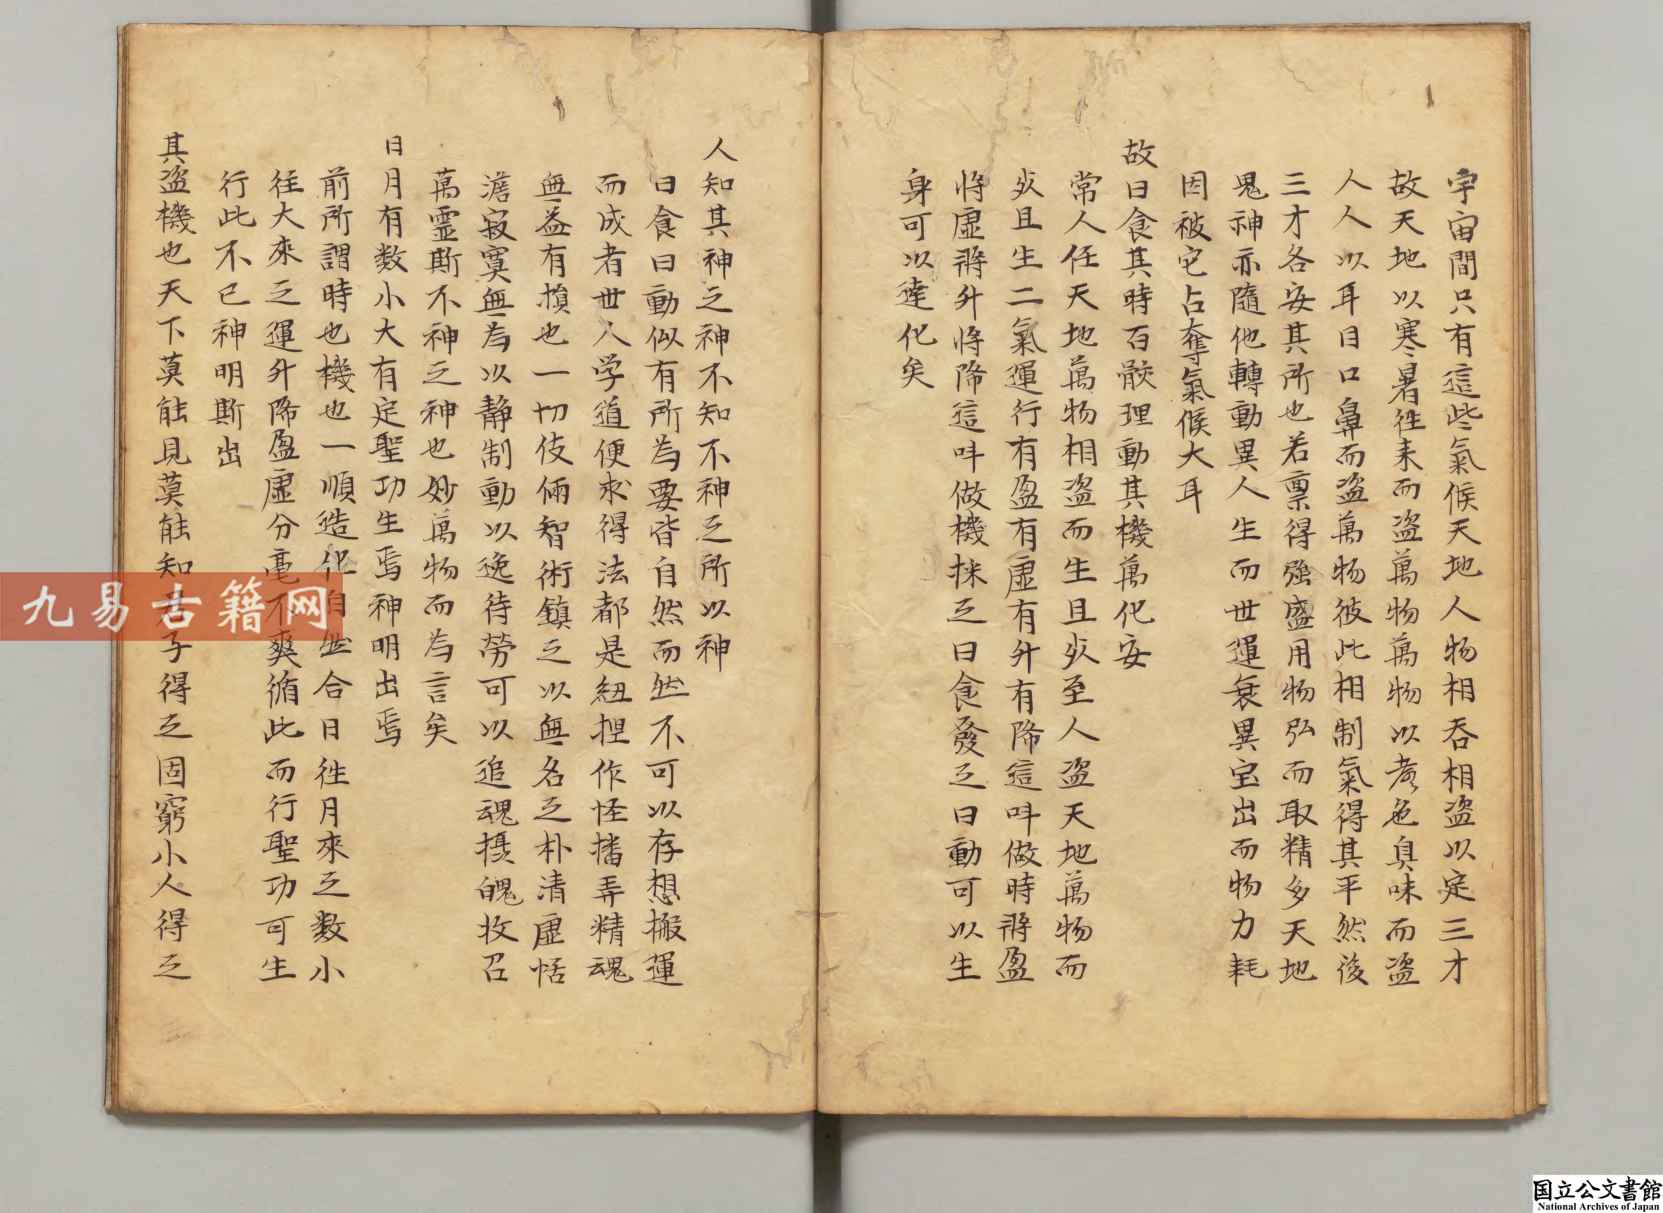 宇宙間只有這些氣候天地人物相吞相盗以定三才
故天地以寒暑徃来而盗萬物萬物以声色臭味而盗
人人以耳目口鼻而盗萬物彼此相制氣得其平然後
三才各安其所也若禀得強盛用物弘而取精多天地
鬼神亦隨他轉動異人生而世運衰異宝出而物力耗
因被它占奪氣候大耳
故曰食其時百骸理動其機萬化安
常人任天地萬物相盗而生且死至人盗天地萬物而
死且生二氣運行有盈有虚有升有降這呌做時將盈
將虚將升將降這呌做機採之曰食發之曰動可以生
身可以達化矣
人知其神之神不知不神之所以神
曰食曰動似有所為要皆自然而然不可以存想搬運
而成者世人学道便求得法都是紐捏作怪播弄精魂
無益有損也一切伎倆智術鎮之以無名之朴清虚恬
澹寂寞無為以静制動以逸待勞可以追魂摄魄收召
萬霊斯不神之神也妙萬物而為言矣
日月有数小大有定聖功生焉神明出焉
前所謂時也機也一順造化自然合日徃月來之數小
徃大來之運升降盈虚分毫不爽循此而行聖功可生
行此不已神明斯出
其盗機也天下莫能見莫能知君子得之固窮小人得之
九易古籍网
国立公文書館
National Archives of Japan